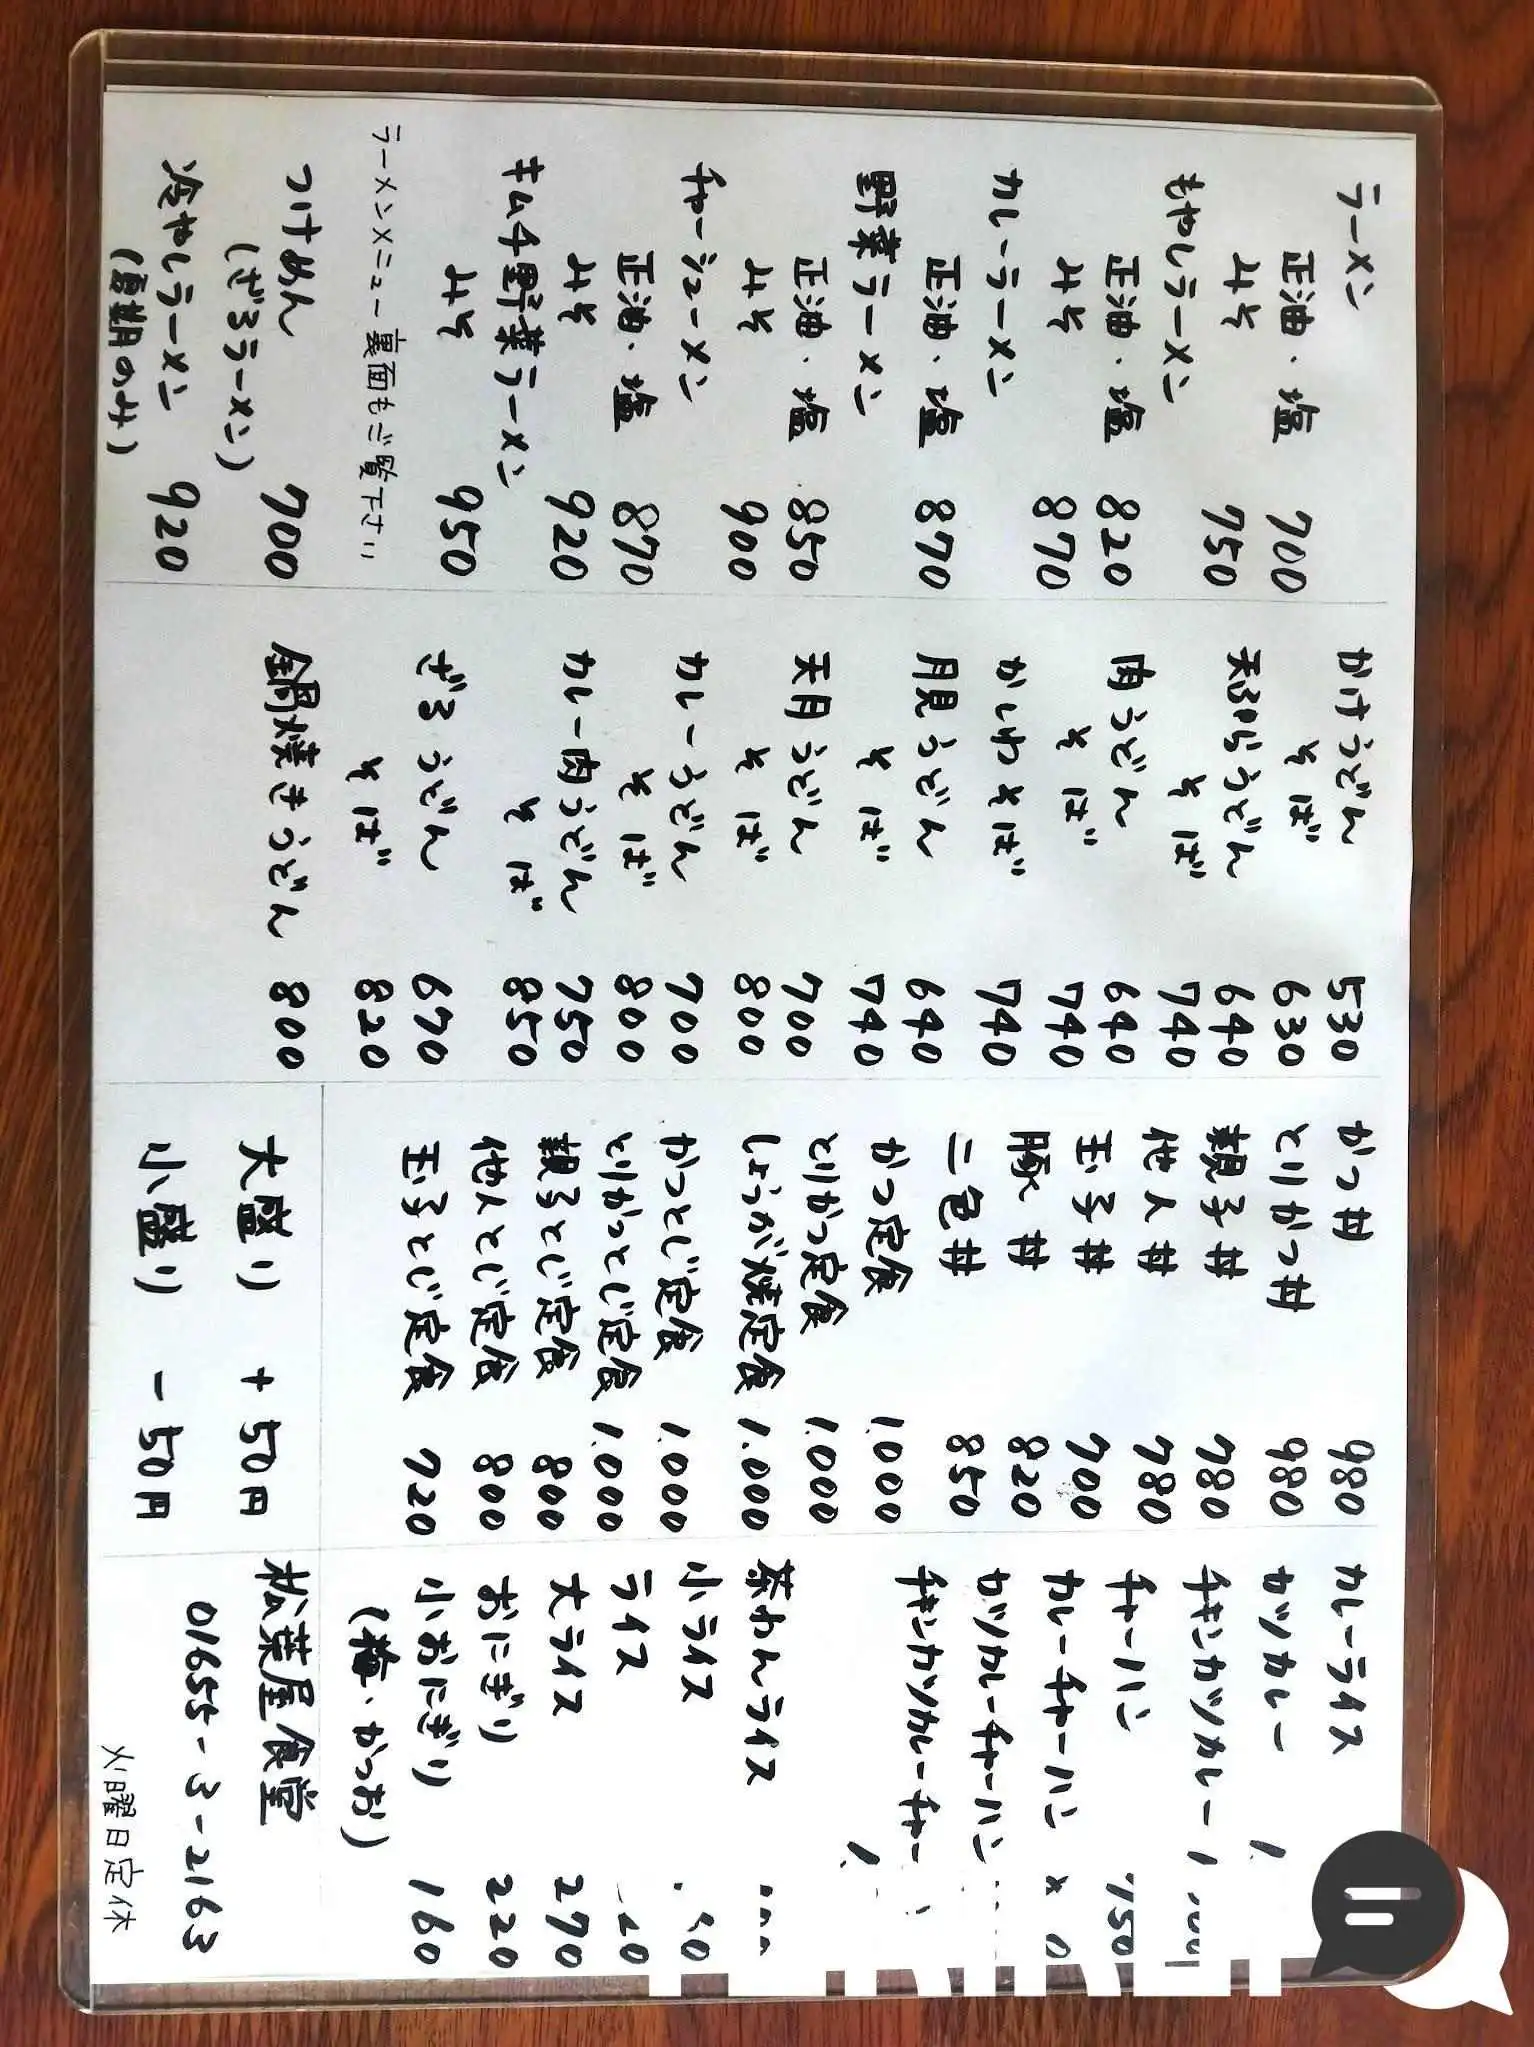 ラーメン
正油・塩 700
みそ 750
もやしラーメン
正油・塩 820
みそ 870
カレーラーメン
正油・塩 870
野菜ラーメン
正油・塩 850
みそ 900
チャーシューメン
正油・塩 870
みそ 920
キムチ野菜ラーメン
みそ 950
ラーメンメニュー裏面もご覧下さい
つけめん 700
(ざるラーメン)
冷やしラーメン 920
(夏期のみ)
かけうどん 530
そば 630
天ぷらうどん 640
そば 740
肉うどん 640
そば 740
かしわそば 740
月見うどん 640
そば 740
天月うどん 700
そば 800
カレーうどん 700
そば 800
カレー肉うどん 750
そば 850
ざるうどん 670
そば 820
鍋焼きうどん 800
かつ丼 980
とりかつ丼 980
親子丼 780
他人丼 780
玉子丼 700
豚丼 820
二色丼 850
かつ定食 1.000
とりかつ定食 1.000
しょうが焼定食 1.000
かつとじ定食 1.000
とりかつとじ定食 1.000
親子とじ定食 800
他人とじ定食 800
玉子とじ定食 720
大盛り +50円
小盛り -50円
カレーライス
カツカレー
チキンカツカレー
チャーハン 750
カレーチャーハン
カツカレーチャーハン
チキンカツカレーチャー
茶わんライス
小ライス
ライス
大ライス 270
おにぎり 220
小おにぎり 160
(梅・かつお)
松葉屋食堂
01655-3-2163
火曜日定休